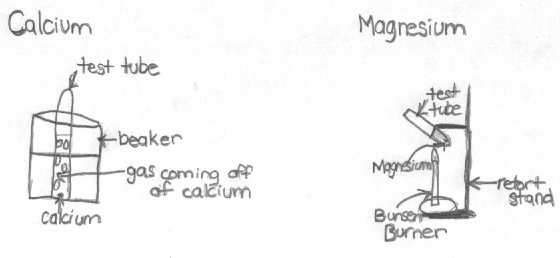 Calcium
test tube
beaker
gas coming off
of calcium
calcium
Magnesium
test
tube
Magnesium
retort
stand
Bunsen
Burner